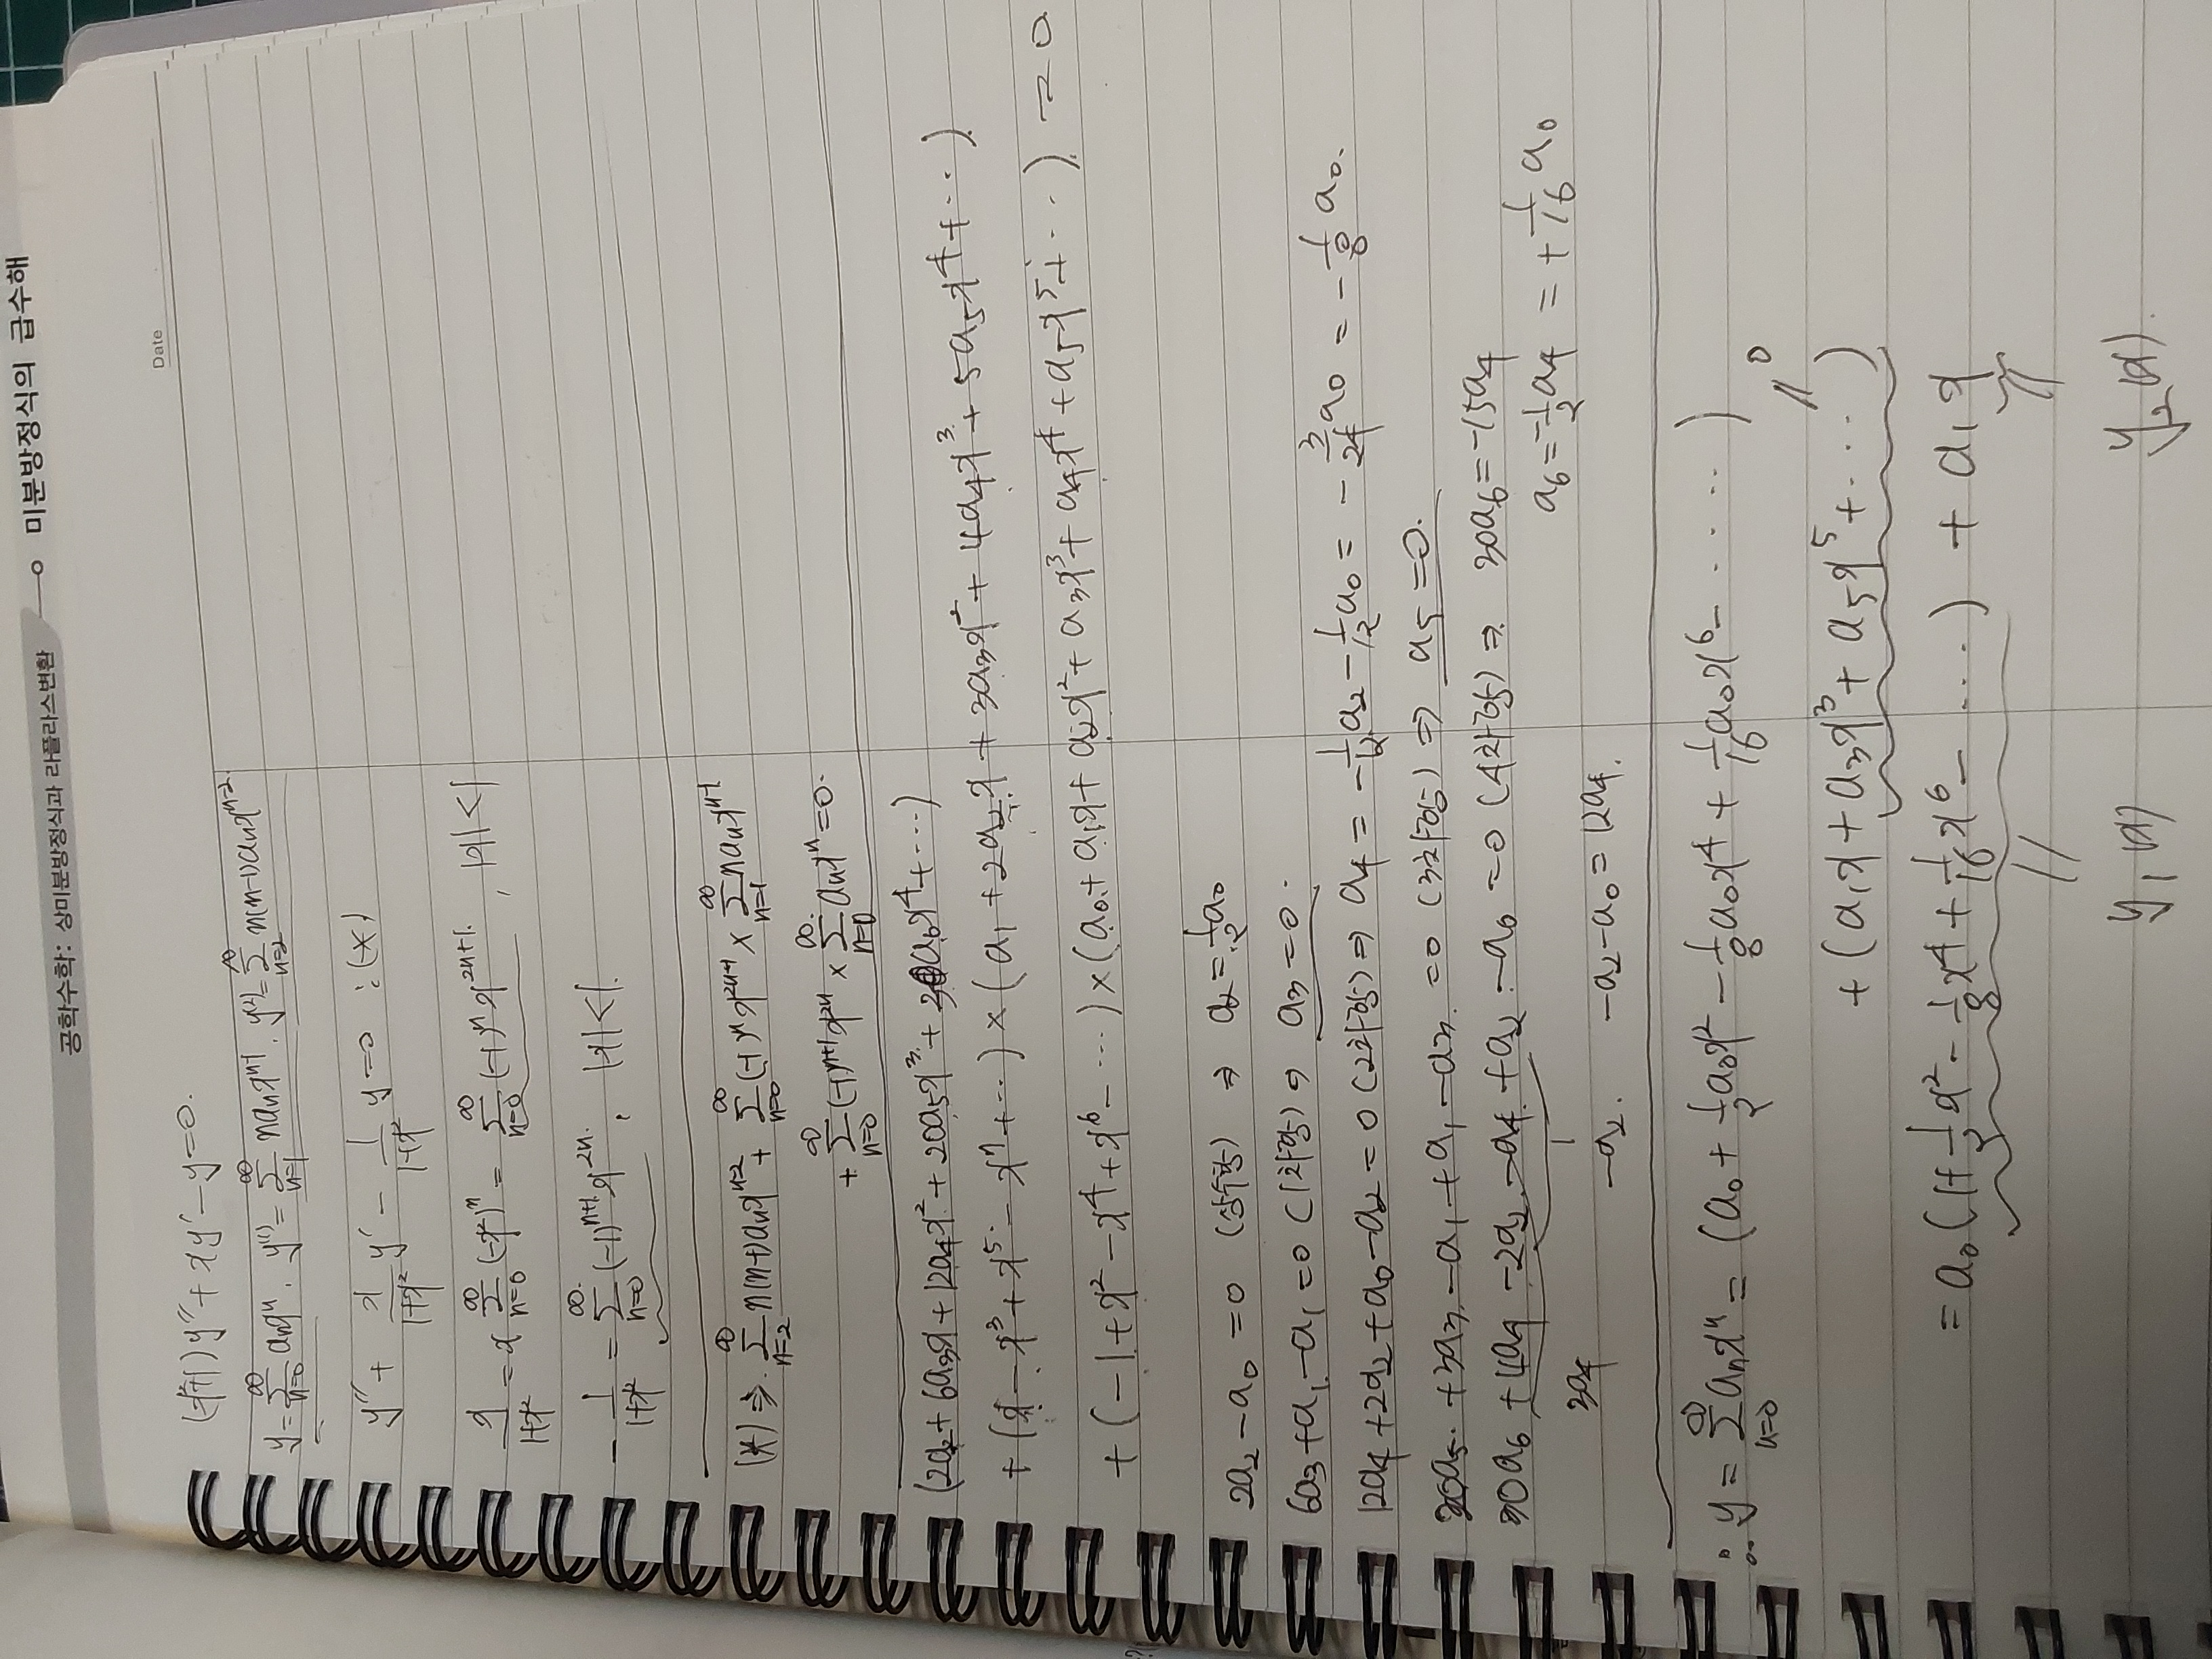 공학수학: 상미분방정식과 라플라스변환 미분방정식의 급수해
Date
(x²+1)y″ + xy′ - y = 0.
y = Σ_{n=0}^{∞} aₙxⁿ, y⁽¹⁾ = Σ_{n=1}^{∞} naₙxⁿ⁻¹, y⁽²⁾ = Σ_{n=2}^{∞} n(n-1)aₙxⁿ⁻².
y″ + x/(1+x²) y′ - 1/(1+x²) y = 0 : (*)
x/(1+x²) = x Σ_{n=0}^{∞} (-x²)ⁿ = Σ_{n=0}^{∞} (-1)ⁿ x²ⁿ⁺¹, |x|<1
- 1/(1+x²) = Σ_{n=0}^{∞} (-1)ⁿ⁺¹ x²ⁿ, |x|<1.
(*) ⇒ Σ_{n=2}^{∞} n(n-1)aₙxⁿ⁻² + Σ_{n=0}^{∞} (-1)ⁿ x²ⁿ⁺¹ × Σ_{n=1}^{∞} naₙxⁿ⁻¹
+ Σ_{n=0}^{∞} (-1)ⁿ⁺¹ x²ⁿ × Σ_{n=0}^{∞} aₙxⁿ = 0.
(2a₂ + 6a₃x + 12a₄x² + 20a₅x³ + 30a₆x⁴ + ⋯)
+ (x - x³ + x⁵ - x⁷ + ⋯) × (a₁ + 2a₂x + 3a₃x² + 4a₄x³ + 5a₅x⁴ + ⋯)
+ (-1 + x² - x⁴ + x⁶ - ⋯) × (a₀ + a₁x + a₂x² + a₃x³ + a₄x⁴ + a₅x⁵ + ⋯) = 0
2a₂ - a₀ = 0 (상수항) ⇒ a₂ = 1/2 a₀
6a₃ + a₁ - a₁ = 0 (1차항) ⇒ a₃ = 0.
12a₄ + 2a₂ + a₀ - a₂ = 0 (2차항) ⇒ a₄ = -1/12 a₂ - 1/12 a₀ = -3/24 a₀ = -1/8 a₀.
20a₅ + 3a₃ - a₁ + a₁ - a₃ = 0 (3차항) ⇒ a₅ = 0.
30a₆ + 4a₄ - 2a₂ - a₄ + a₂ - a₀ = 0 (4차항) ⇒ 30a₆ = -15a₄
3a₄ -a₂. -a₂ - a₀ = 12a₄. a₆ = -1/2 a₄ = +1/16 a₀
∴ y = Σ_{n=0}^{∞} aₙxⁿ = (a₀ + 1/2 a₀x² - 1/8 a₀x⁴ + 1/16 a₀x⁶ - ⋯⋯)
+ (a₁x + a₃x³ + a₅x⁵ + ⋯) = 0
= a₀(1 + 1/2 x² - 1/8 x⁴ + 1/16 x⁶ - ⋯) + a₁x
y₁(x) y₂(x).